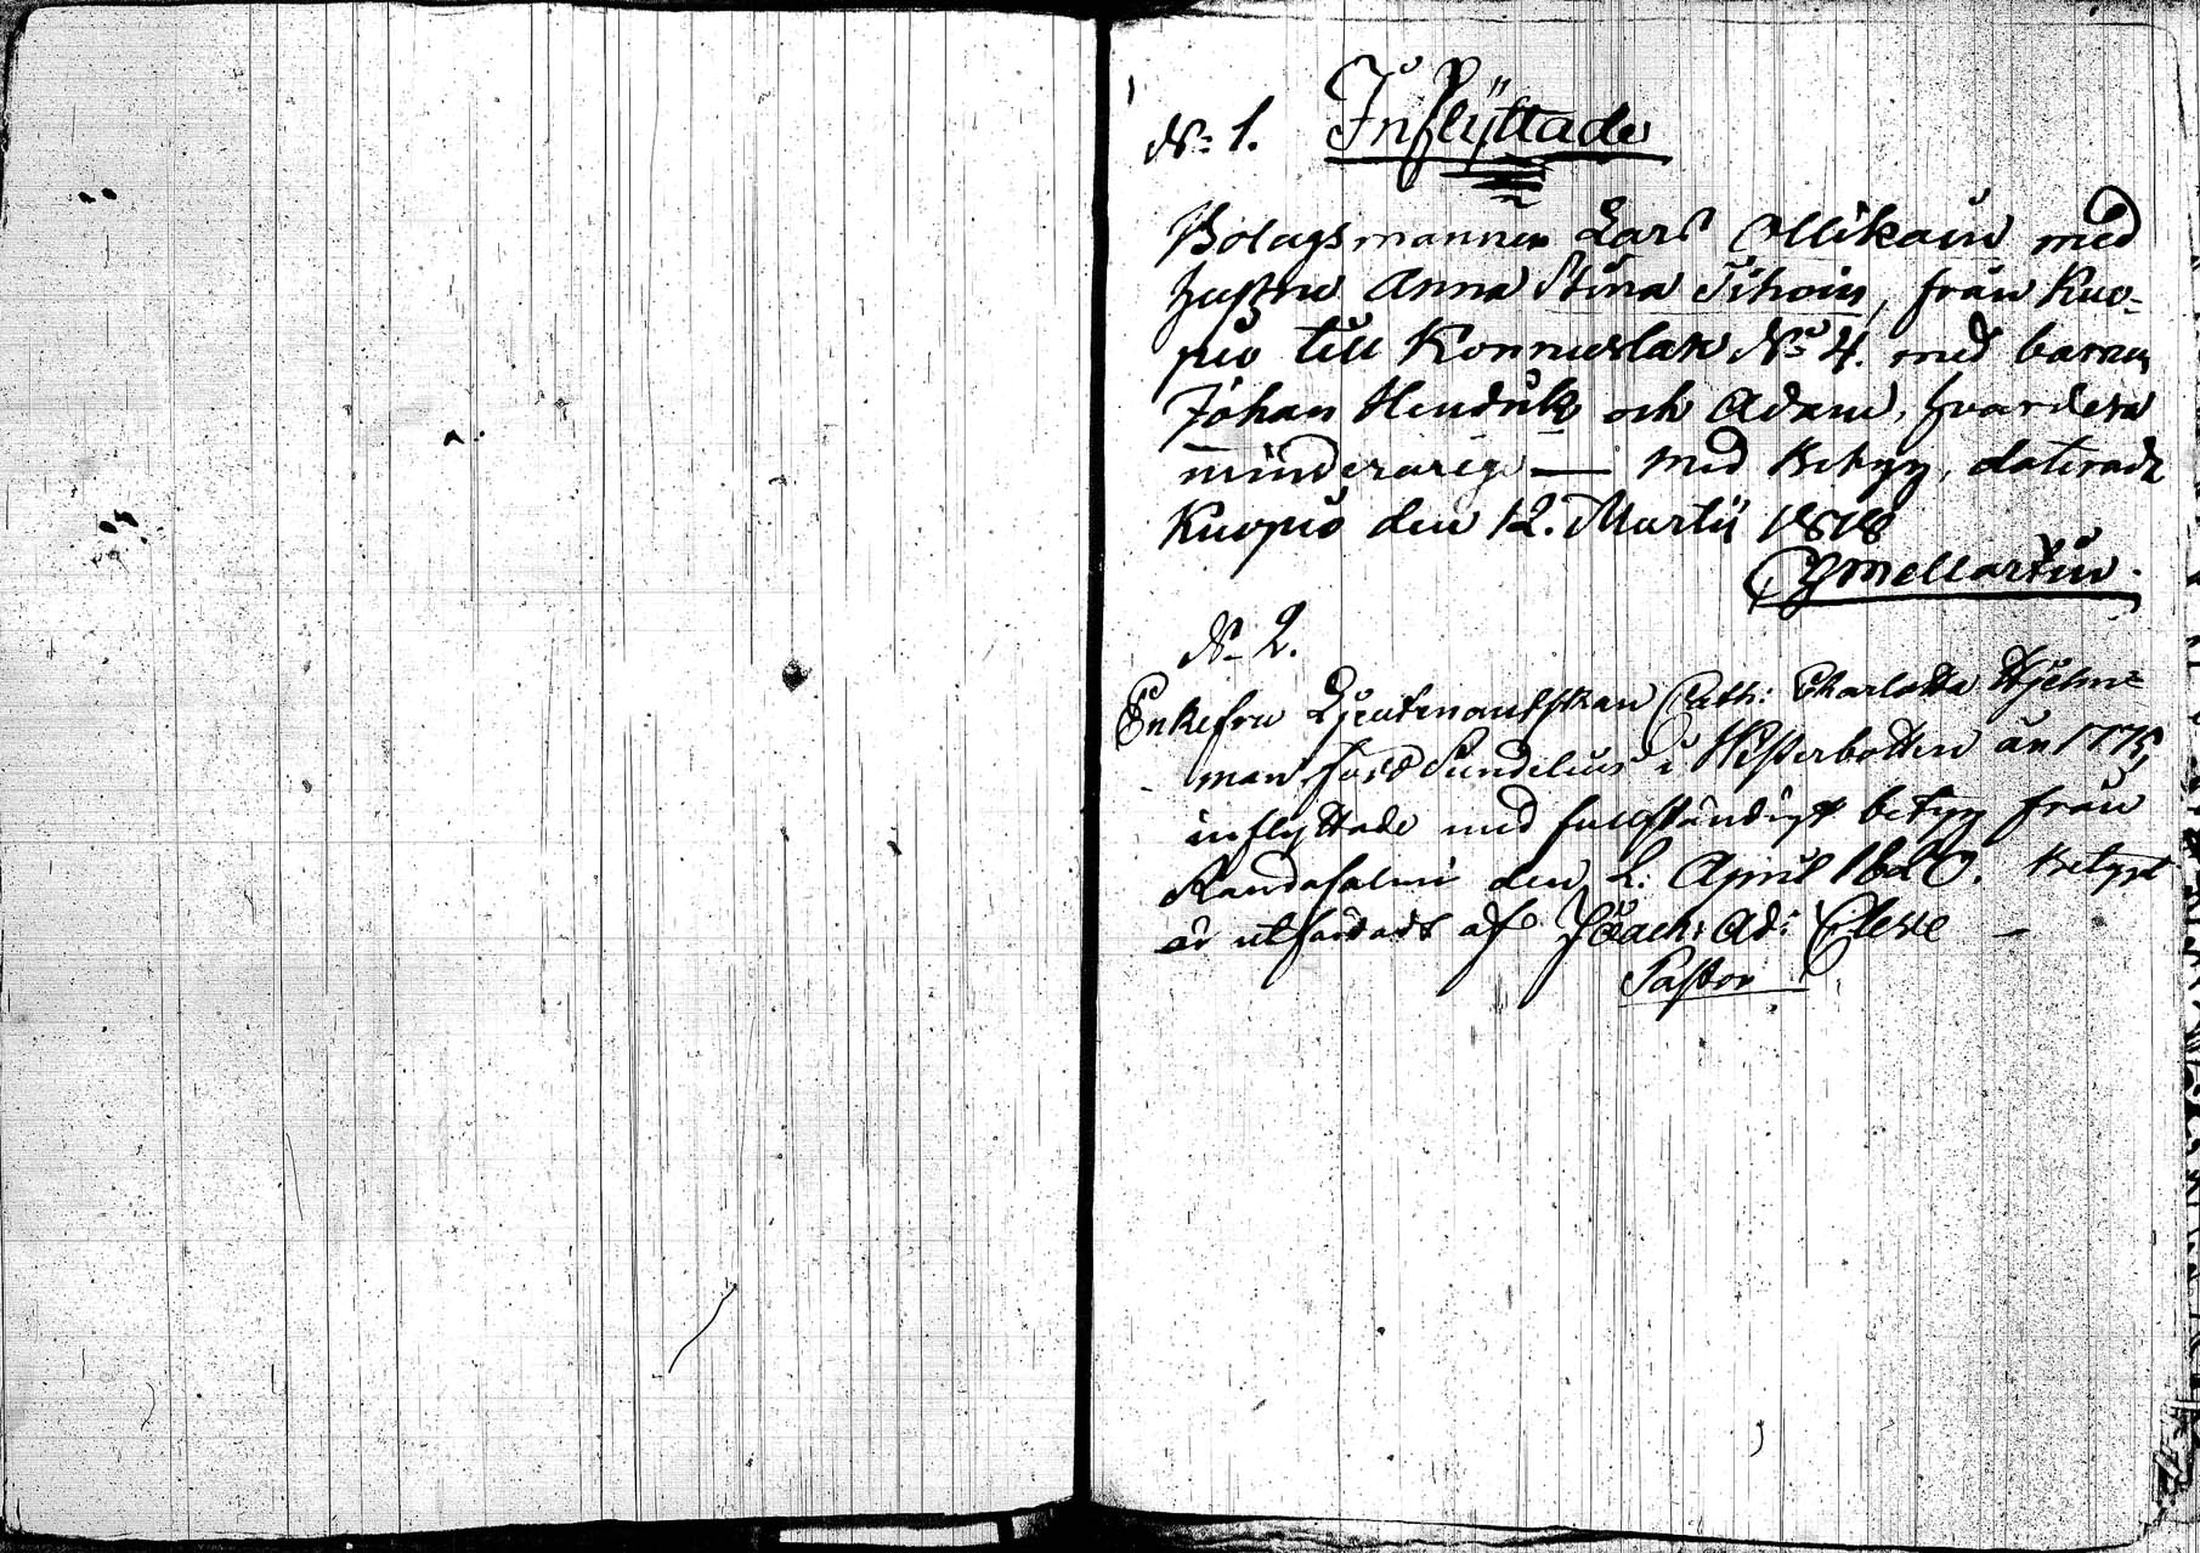 Inflÿttade
N: 1.
Bolagsmannen Lars Ollikain med
hustru Anna Stina Tihoin, från Kuo-
pio till Konnuslax No 4. med barnen
Johan Hendrik och Adam, hvardera
minderårige — med Betyg, daterade
Kuopio den 12. Martii 1818
Mellartin.
N 2.
Enkefru Ljeutenantskan Cath: Charlotta Hjelm=
man född Sundelius i Westerbotten år 1775,
inflyttade med fullständigt betyg från
Randasalmi den 2: April 1820. Betyget
är utfärdadt af Joach: Ad: Cleve —
Pastor